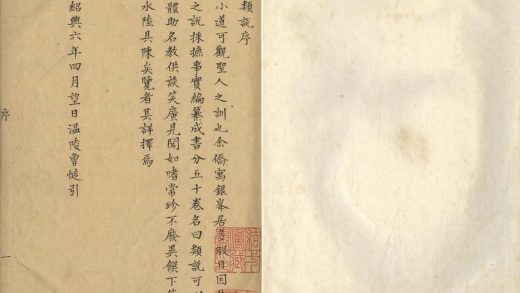 類說序
小道可觀聖人之訓也余僑寓銀峯居多暇日因
之說採摭事實編纂成書分五十卷名曰類說可
體助名教供談笑廣見聞如嗜常珍不廢異饌下
水陸具陳矣覽者其詳擇焉
紹興六年四月望日温陵曾慥引
序
一